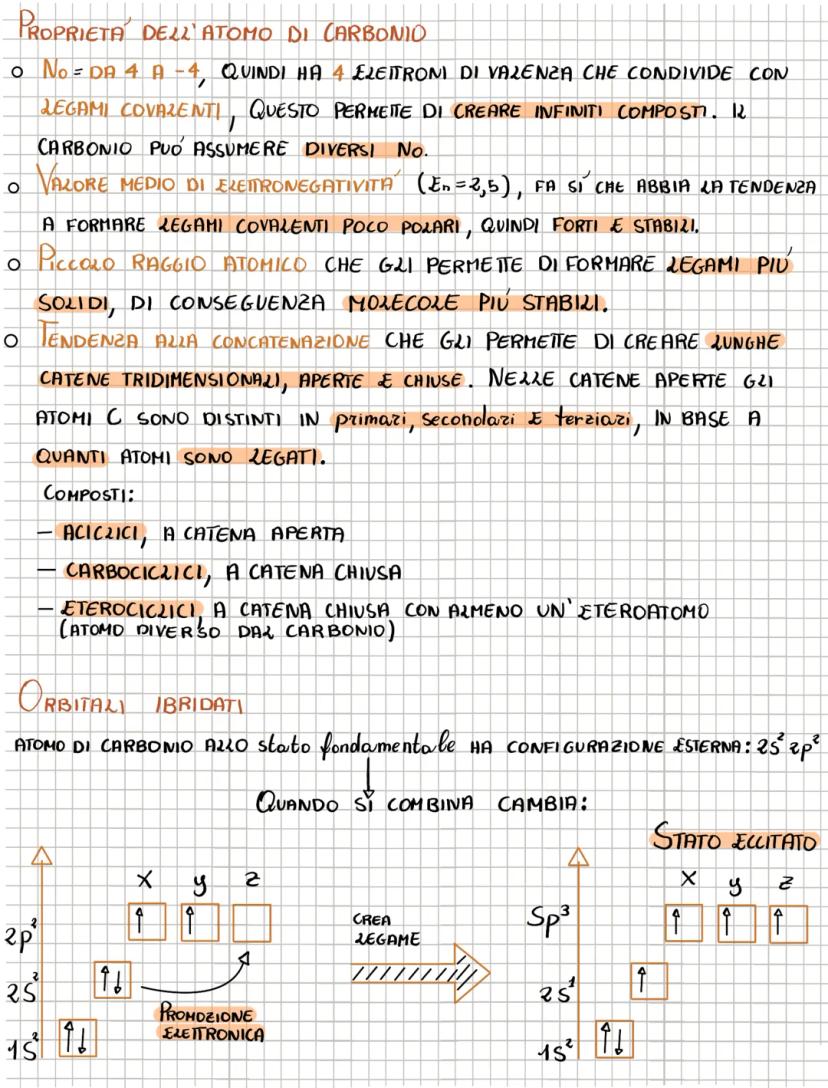 PROPRIETÁ DELL'ATOMO DI CARBONIO
NO = DA 4 A -4, QUINDI HA 4 ELETTRONI DI VALENZA CHE CONDIVIDE CON
LEGAMI COVALENTI, QUESTO PERMETTE DI CREARE INFINITI COMPOSTI. IL
CARBONIO PUÓ ASSUMERE DIVERSI NO.
VALORE MEDIO DI ELETTRONEGATIVITÁ (En=2,5), FA SÍ CHE ABBIA LA TENDENZA
A FORMARE LEGAMI COVALENTI POCO POLARI, QUINDI FORTI E STABILI.
PICCOLO RAGGIO ATOMICO CHE GLI PERMETTE DI FORMARE LEGAMI PIÚ
SOLIDI, DI CONSEGUENZA MOLECOLE PIÚ STABILI.
TENDENZA ALLA CONCATENAZIONE CHE GLI PERMETTE DI CREARE LUNGHE
CATENE TRIDIMENSIONALI, APERTE E CHIUSE. NELLE CATENE APERTE GLI
ATOMI C SONO DISTINTI IN primari, secondari E terziari, IN BASE A
QUANTI ATOMI SONO LEGATI.
COMPOSTI:
- ACICLICI, A CATENA APERTA
- CARBOCICLICI, A CATENA CHIUSA
- ETEROCICLICI, A CATENA CHIUSA CON ALMENO UN'ETEROATOMO
(ATOMO DIVERSO DAL CARBONIO)
ORBITALI IBRIDATI
ATOMO DI CARBONIO ALLO stato fondamentale HA CONFIGURAZIONE ESTERNA: 2s² 2p²
QUANDO SI COMBINA CAMBIA:
STATO ECCITATO
x y z
2p²
2s²
1s²
PROMOZIONE
ELETTRONICA
CREA
LEGAME
x y z
Sp³
2s¹
1s²